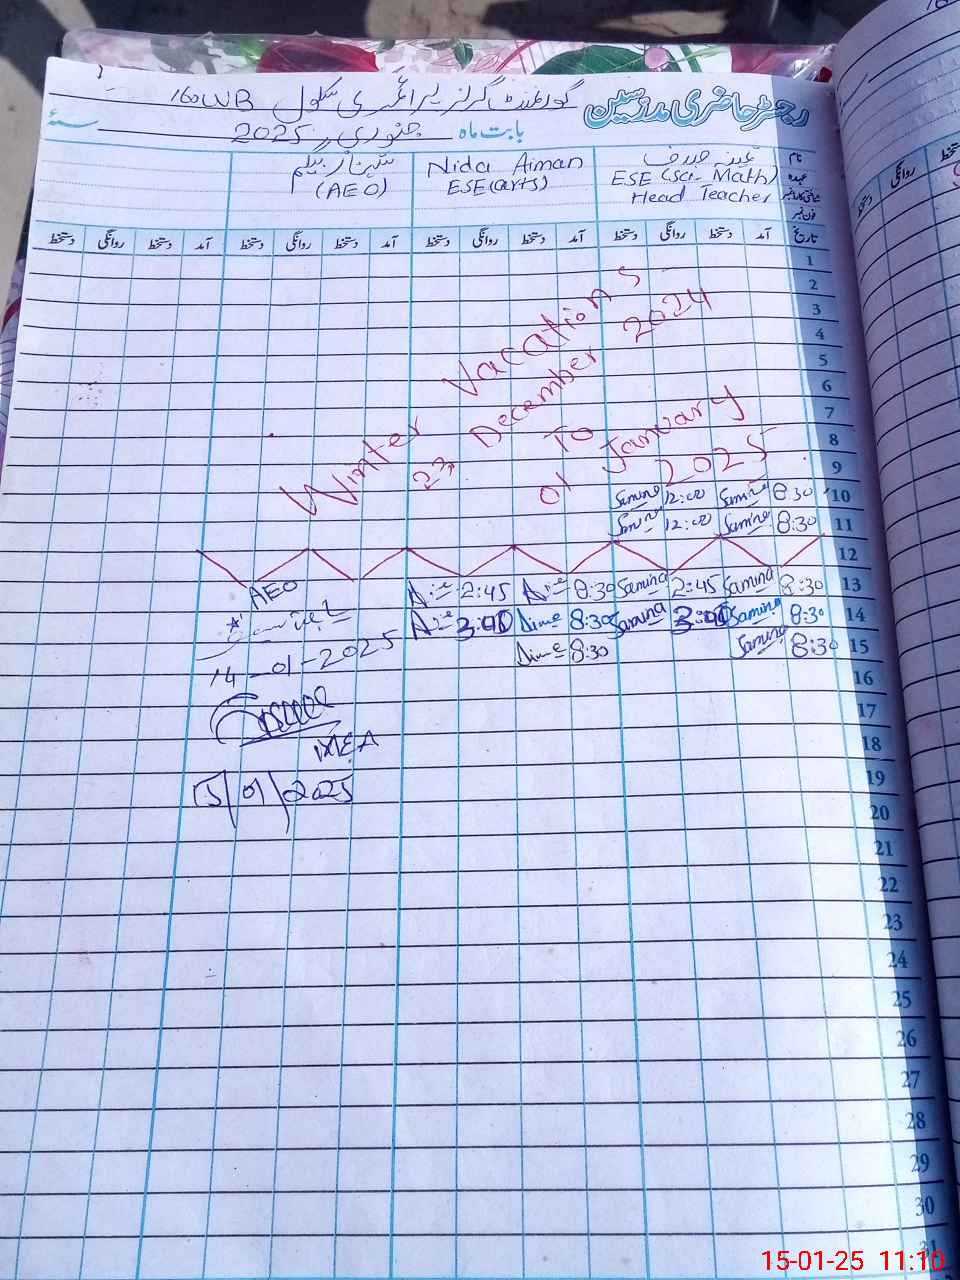 رجسٹر حاضری مدرسین گورنمنٹ گرلز پرائمری سکول 160 WB
بابت ماہ جنوری 2025 سنۂ
نام
عہدہ
شناختی کارڈ نمبر
فون نمبر
ESE (Sci-Math)
Head Teacher
Nida Aiman
ESE (arts)
(AEO)
تاریخ آمد دستخط روانگی دستخط آمد دستخط روانگی دستخط آمد دستخط روانگی دستخط آمد دستخط روانگی دستخط
1
2
3
4
5
6
7
8
9
Winter Vacations
23 December 2024
To
01 January
2025
10 8:30 Samina 12:00 Samina
11 8:30 Samina 12:00 Samina
12
13 8:30 Samina 2:45 Samina 8:30 2:45
14 8:30 Samina 3:00 Samina 8:30 3:00
15 8:30 Samina 8:30
AEO
14-01-2025
MEA
15/01/2025
16
17
18
19
20
21
22
23
24
25
26
27
28
29
30
31
15-01-25 11:10